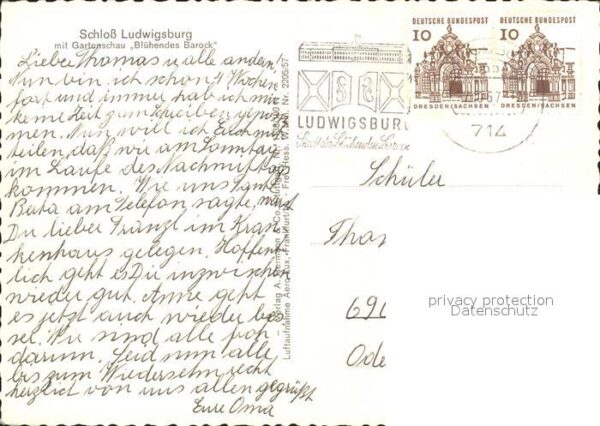 Schloß Ludwigsburg
mit Gartenschau „Blühendes Barock"
Lieber Thomas u. alle andern!
Nun bin ich schon 4 Wochen
fort und immer hab ich mir
keine Zeit zum Schreiben genom
men. Nun will ich Euch mit
teilen, daß wir am Sonntag
im Laufe des Nachmittags
kommen. Wie uns Tante
Berta am Telefon sagte, warst
Du lieber Franzl im Kran
kenhaus gelegen. Hoffent
lich geht es Dir inzwischen
wieder gut. Anne geht
es jetzt auch wieder bes
ser. Wir sind alle froh
darum. Seid nun alle
bis zum Wiedersehn recht
herzlich von uns allen gegrüßt
Eure Oma
Luftaufnahme Aero
Frankfurt/M.
Freig. Hess.
Nr. 2205/57
LUDWIGSBURG
Stadt des Blühenden Barock
714
DEUTSCHE BUNDESPOST
10
DRESDEN/SACHSEN
DEUTSCHE BUNDESPOST
10
DRESDEN/SACHSEN
Schüler
Thom
690
Ode
privacy protection
Datenschutz